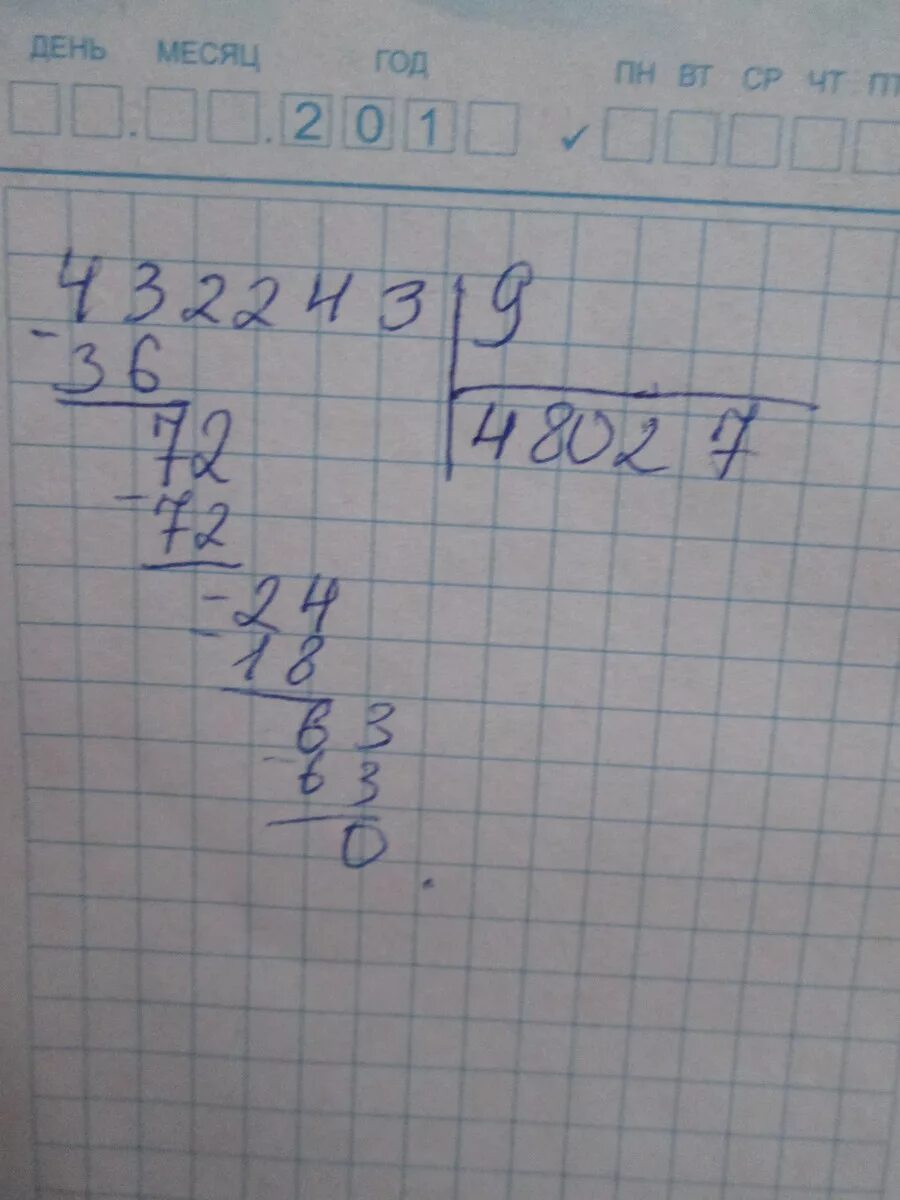 ДЕНЬ МЕСЯЦ ГОД ПН ВТ СР ЧТ ПТ
. . 2 0 1 ✓
432243 9
- 36 48027
72
- 72
- 24
- 18
63
- 63
0
.